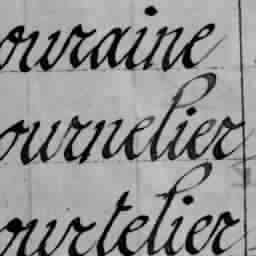 ouraine
ournelier
ourtelier